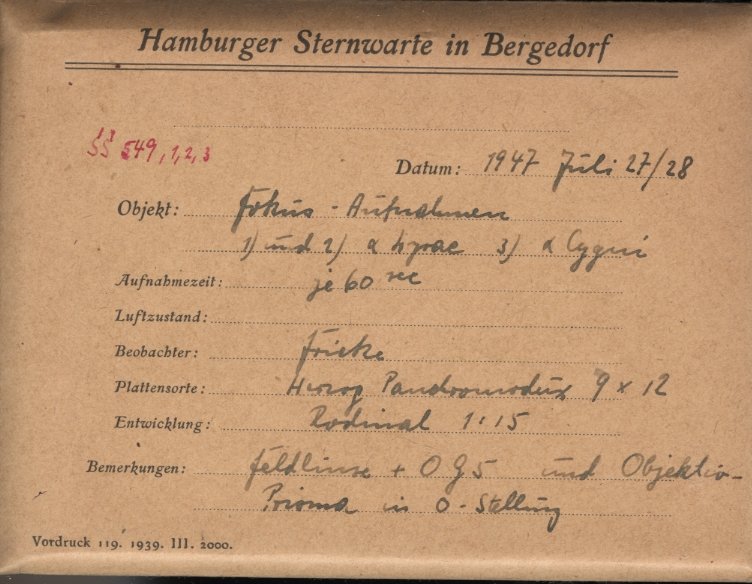 Hamburger Sternwarte in Bergedorf
SS 549, 1, 2, 3
Datum: 1947 Juli 27/28
Objekt: Fokus - Aufnahmen
1) und 2) α Lyrae 3) α Cygni
Aufnahmezeit: je 60 sec
Luftzustand:
Beobachter: Fricke
Plattensorte: Herzog 9 x 12
Entwicklung: Rodinal 1:15
Bemerkungen: Feldlinse + OG5 und Objektiv-
Prisma in O-Stellung
Vordruck 119. 1939. III. 2000.